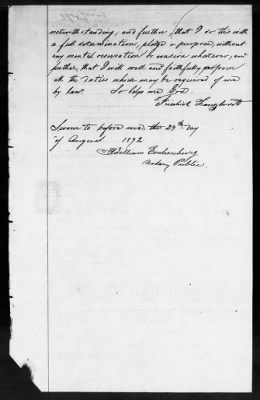 notwithstanding; and further, that I do this with
a full determination, pledge & purpose, without
any mental reservation or evasion whatever; and
further, that I will well and faithfully perform
all the duties which may be required of me
by law. So help me God.
Sworn to before me this 29th day
of August 1872
William
Notary Public